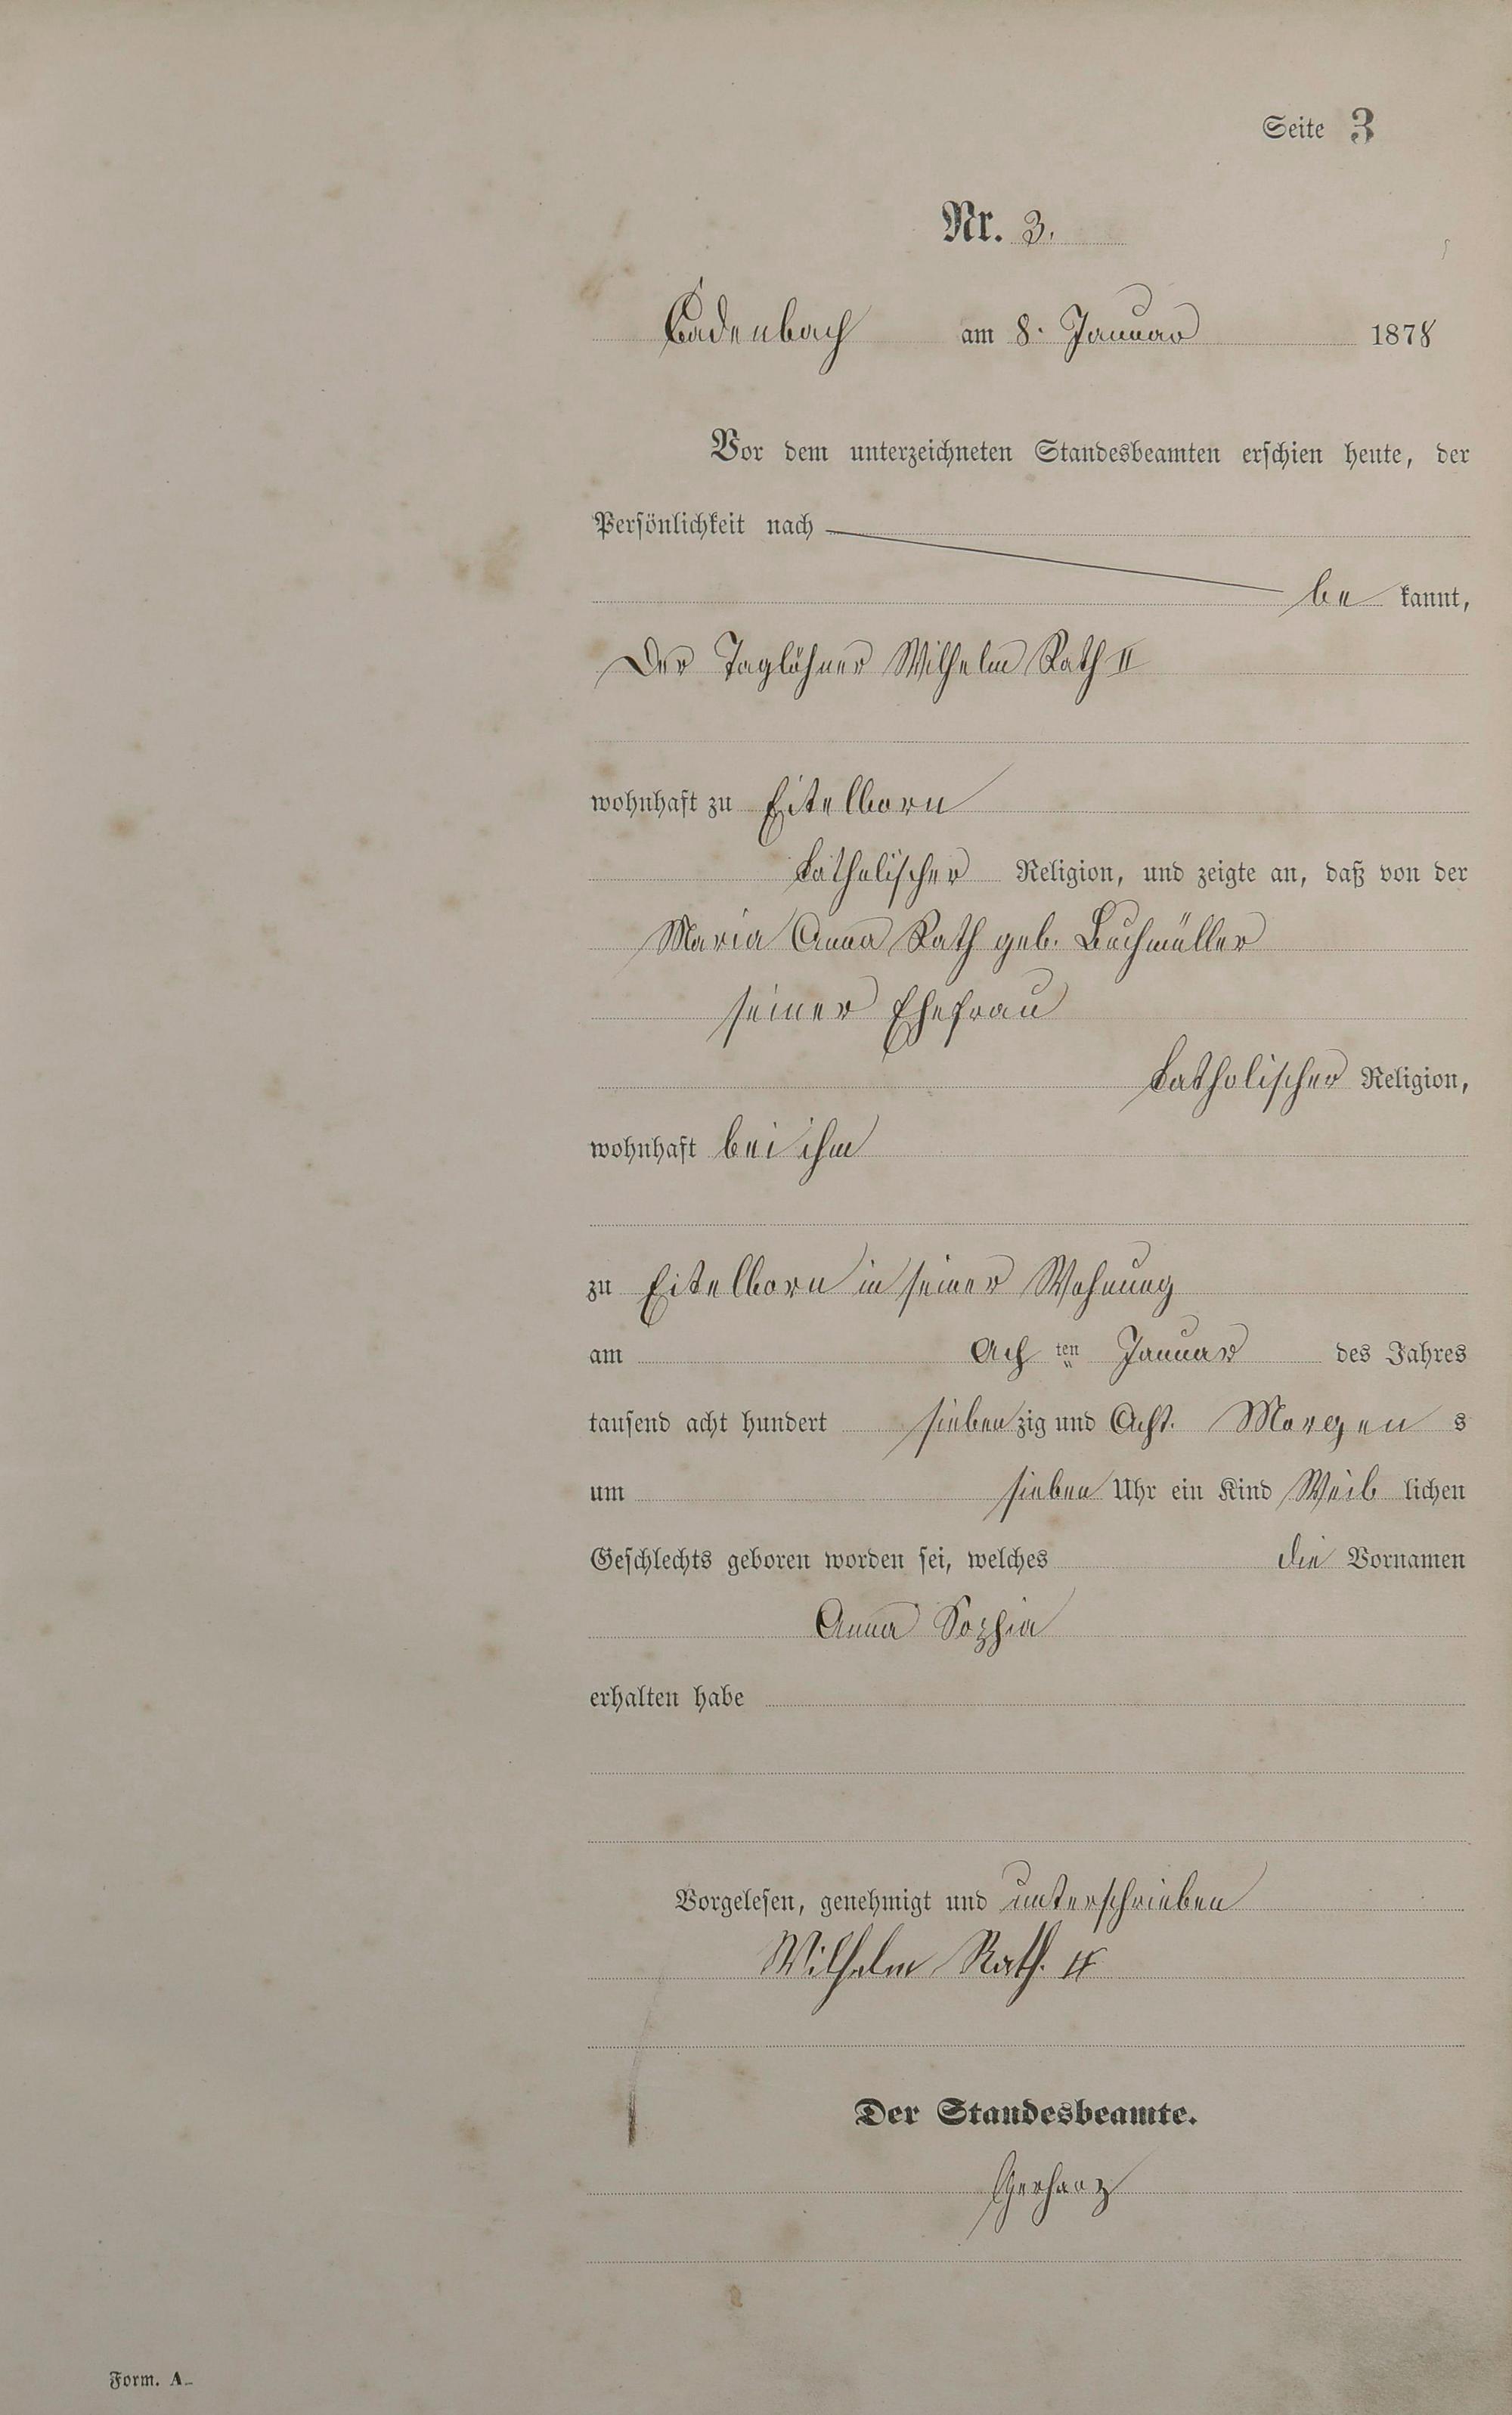 Seite 3
Nr. 3.
Cadenbach am 8. Januar 1878
Vor dem unterzeichneten Standesbeamten erschien heute, der
Persönlichkeit nach
be kannt,
Der Taglöhner Wilhelm Rath II
wohnhaft zu Eitelborn
katholischer Religion, und zeigte an, daß von der
Maria Anna Rath geb. Buchmüller
seiner Ehefrau
katholischer Religion,
wohnhaft bei ihm
zu Eitelborn in seiner Wohnung
am Ach ten Januar des Jahres
tausend acht hundert sieben zig und Acht. Morgen s
um sieben Uhr ein Kind Weib lichen
Geschlechts geboren worden sei, welches die Vornamen
Anna Sophia
erhalten habe
Vorgelesen, genehmigt und unterschrieben
Wilhelm Rath. II
Der Standesbeamte.
Gerharz
Form. A.